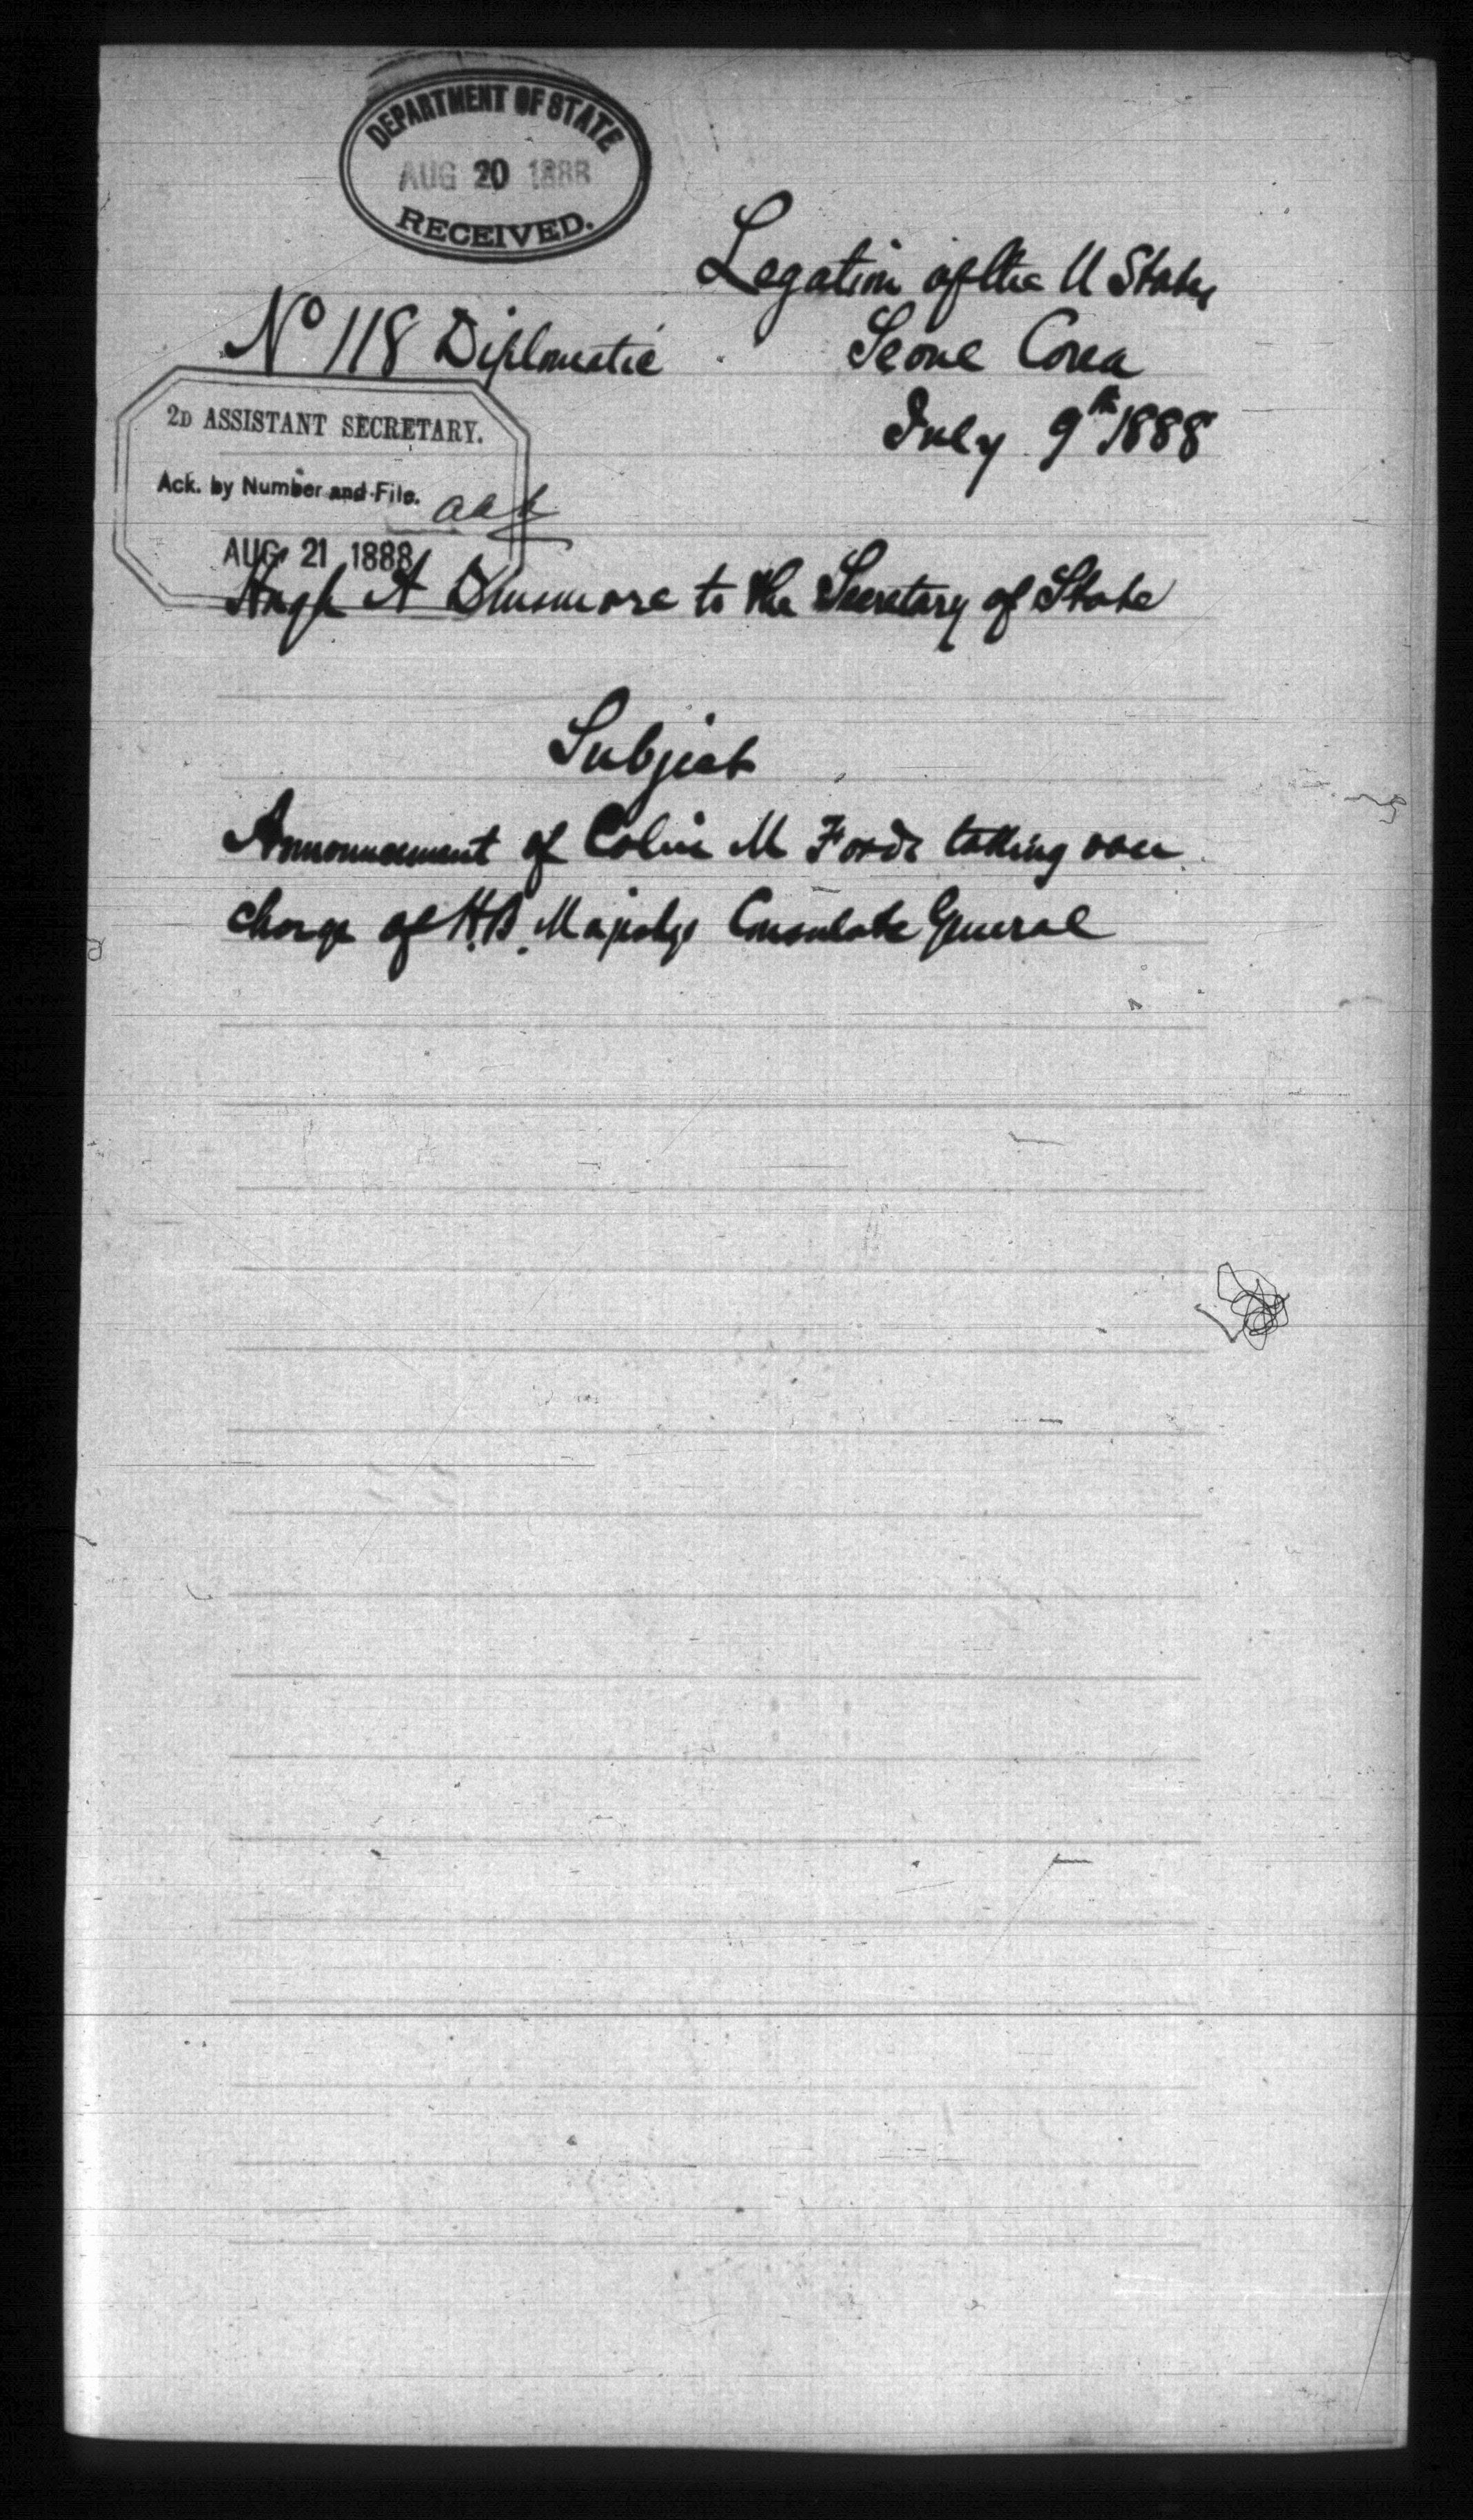 DEPARTMENT OF STATE
AUG 20 1888
RECEIVED.
Legation of the U States
No 118 Diplomatic
Seoul Corea
July 9th 1888
2D ASSISTANT SECRETARY.
Ack. by Number and File.
AUG 21 1888
Hugh A Dinsmore to the Secretary of State
Subject
Announcement of Colin M Ford taking over
charge of H.B. Majestys Consulate General